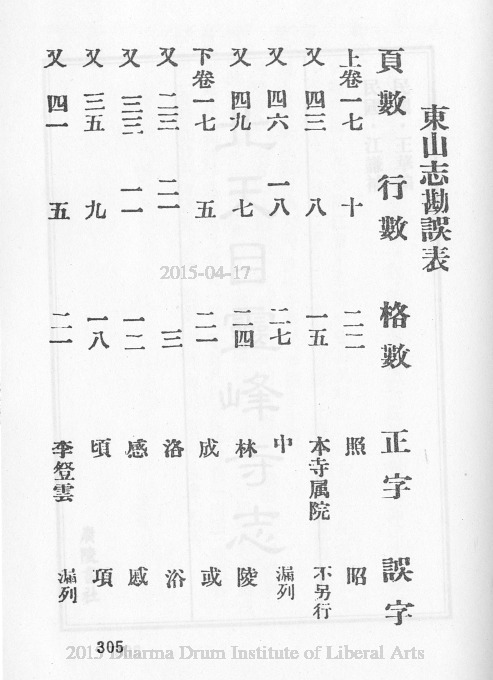 東山志勘誤表
頁數 行數 格數 正字 誤字
上卷一七 十 二二 照 昭
又 四三 八 一五 本寺属院 不另行
又 四六 一八 二七 中 漏列
又 四九 七 二四 林 陵
下卷一七 五 二一 成 或
又 二三 二一 三 洛 浴
又 三三 一一 一二 感 慼
又 三五 九 一八 頃 項
又 四一 五 二一 李登雲 漏列
2015-04-17
305
2015 Dharma Drum Institute of Liberal Arts